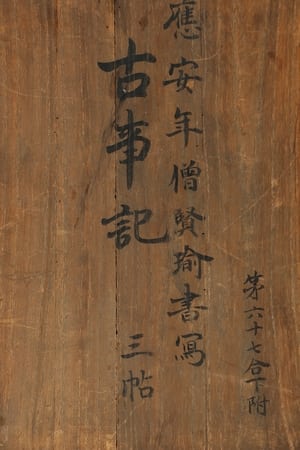 應安年僧賢瑜書寫
古事記
三帖
第六十七合下附